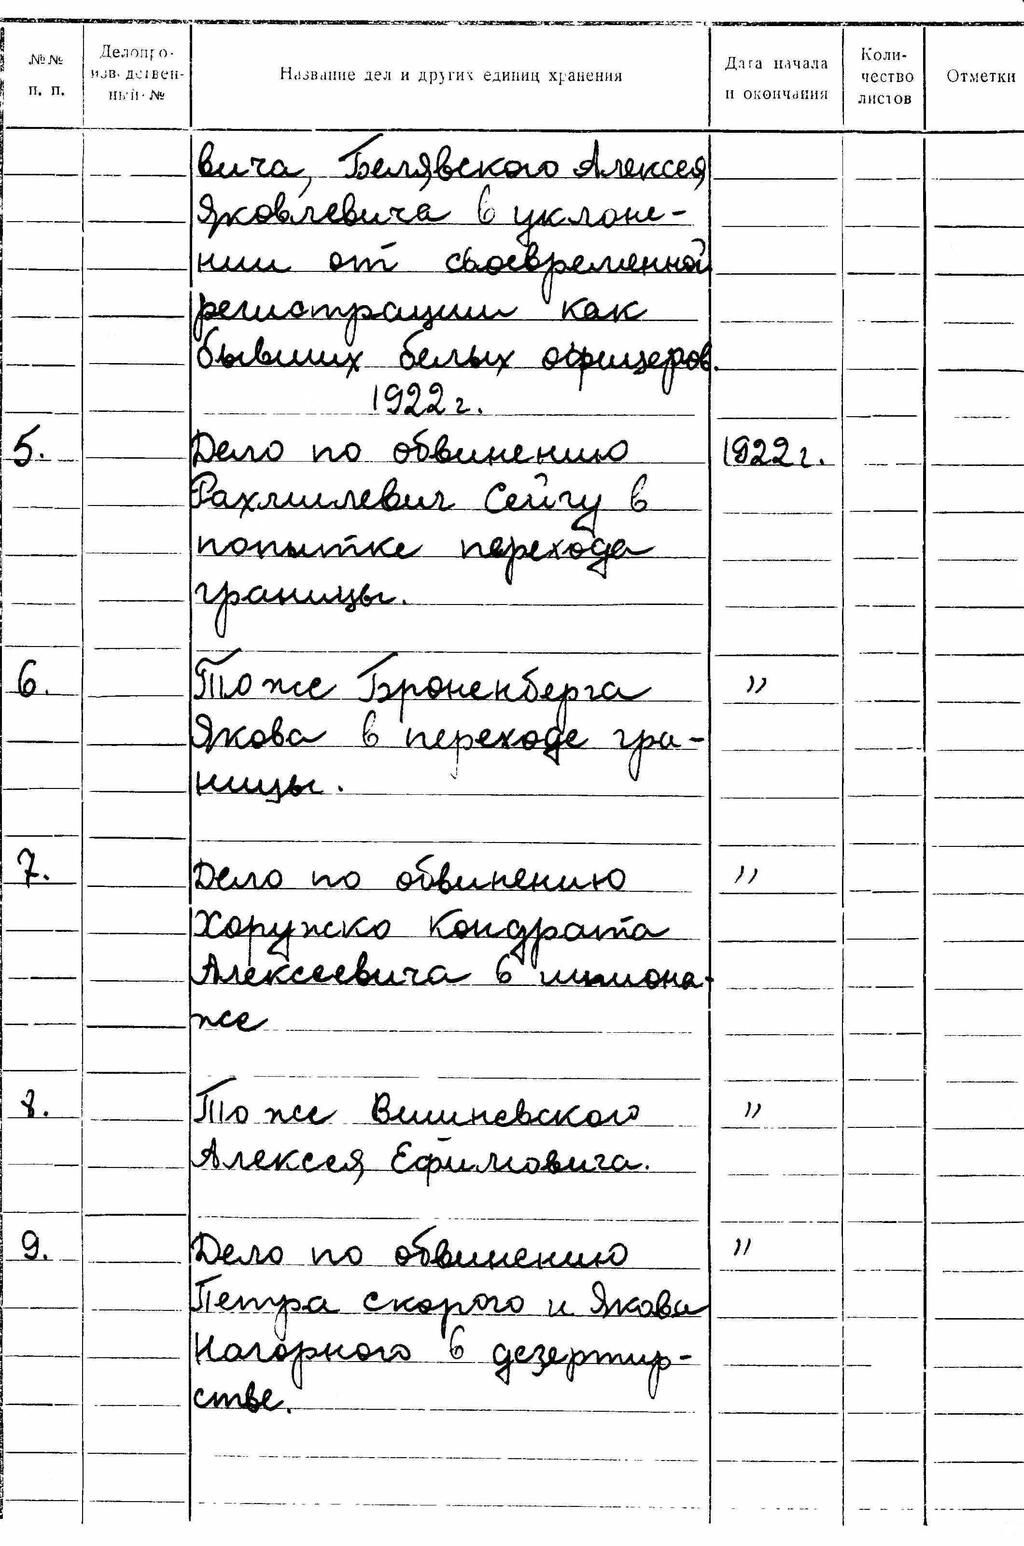 №№ п. п.
Делопро-изв. дственный №
Название дел и других единиц хранения
Дата начала и окончания
Коли-чество листов
Отметки
вича, Белявского Алексея
Яковлевича в уклоне-
нии от своевременной
регистрации как
бывших белых офицеров.
1922 г.
5. Дело по обвинению 1922 г.
Рахлилевич Сейгу в
попытке перехода
границы.
6. То же Броненберга "
Якова в переходе гра-
ницы.
7. Дело по обвинению "
Хоружко Кондрата
Алексеевича в шпиона-
же
8. То же Вишневского "
Алексея Ефимовича.
9. Дело по обвинению "
Петра скорого и Якова
Нагорного в дезертир-
стве.